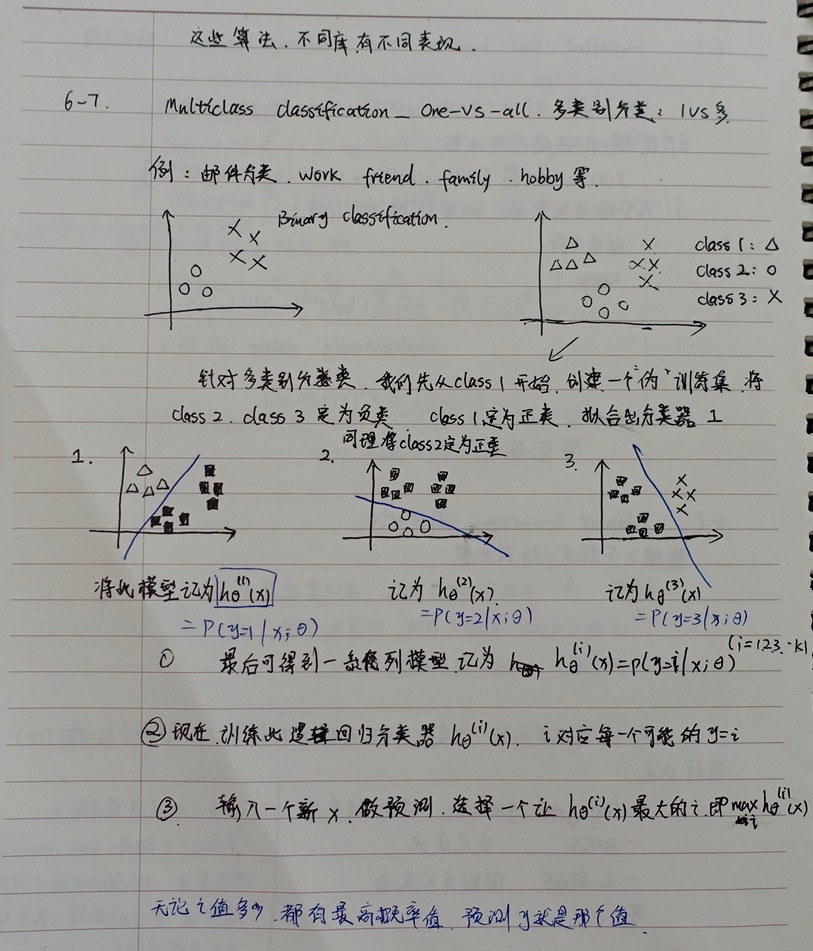 这些算法、不同库有不同表现.
6-7. Multiclass classification_ One-vs-all. 多类别分类: 1vs多
例: 邮件分类. work friend. family. hobby 等.
Binary classification.
class 1: △
class 2: O
class 3: X
针对多类别分类, 我们先从class 1 开始, 创建一个"伪"训练集, 将
class 2. class 3 定为负类 class 1定为正类. 拟合出分类器 1
同理将class2定为正类
1.
2.
3.
将此模型记为 hθ⁽¹⁾(x) 记为 hθ⁽²⁾(x). 记为 hθ⁽³⁾(x)
= P(y=1|x;θ) = P(y=2|x;θ) = P(y=3|x;θ)
① 最后可得到一系列模型, 记为 hθ⁽ⁱ⁾(x)=p(y=i|x;θ) (i=123.-k)
② 现在, 训练此逻辑回归分类器 hθ⁽ⁱ⁾(x). i对应每一个可能的y=i
③ 输入一个新x, 做预测. 选择一个让 hθ⁽ⁱ⁾(x)最大的i. 即 max i hθ⁽ⁱ⁾(x)
无论i值多少, 都有最高概率值, 预测y就是那个值.